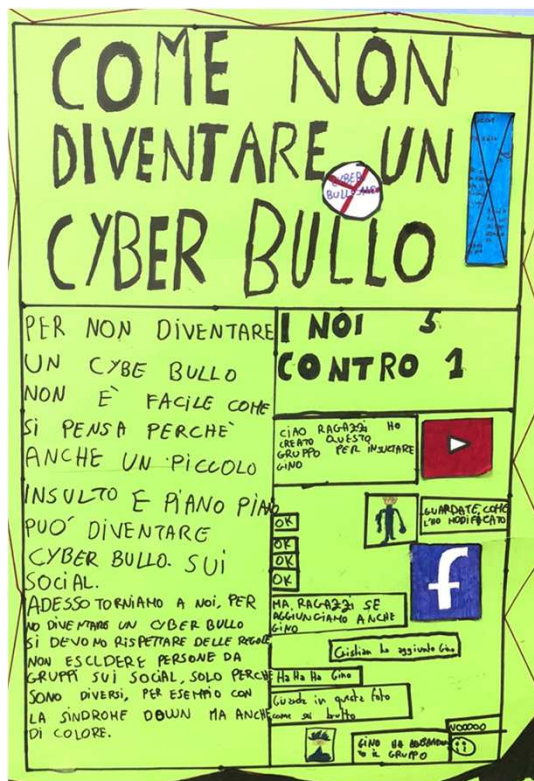 COME NON
DIVENTARE UN
CYBER BULLO
CYBER
BULLISMO
PER NON DIVENTARE
UN CYBE BULLO
NON È FACILE COME
SI PENSA PERCHÈ
ANCHE UN PICCOLO
INSULTO E PIANO PIANO
PUO' DIVENTARE
CYBER BULLO. SUI
SOCIAL.
ADESSO TORNIAMO A NOI, PER
NO DIVENTARE UN CYBER BULLO
SI DEVONO RISPETTARE DELLE REGOLE
NON ESCLDERE PERSONE DA
GRUPPI SUI SOCIAL, SOLO PERCHE
SONO DIVERSI, PER ESEMPIO CON
LA SINDROME DOWN MA ANCHE
DI COLORE.
I NOI 5
CONTRO 1
CIAO RAGAZZI HO
CREATO QUESTO
GRUPPO PER INSULTARE
GINO
GUARDATE, COME
L'HO MODIFICATO
OK
OK
OK
OK
f
MA, RAGAZZI SE
AGGIUNGIAMO ANCHE
GINO
Cristian ha aggiunto Gino
Ha Ha Ha Gino
Guarda in questa foto
come sei brutto
GINO HA ABBANDONA
TO IL GRUPPO
NOOOOO